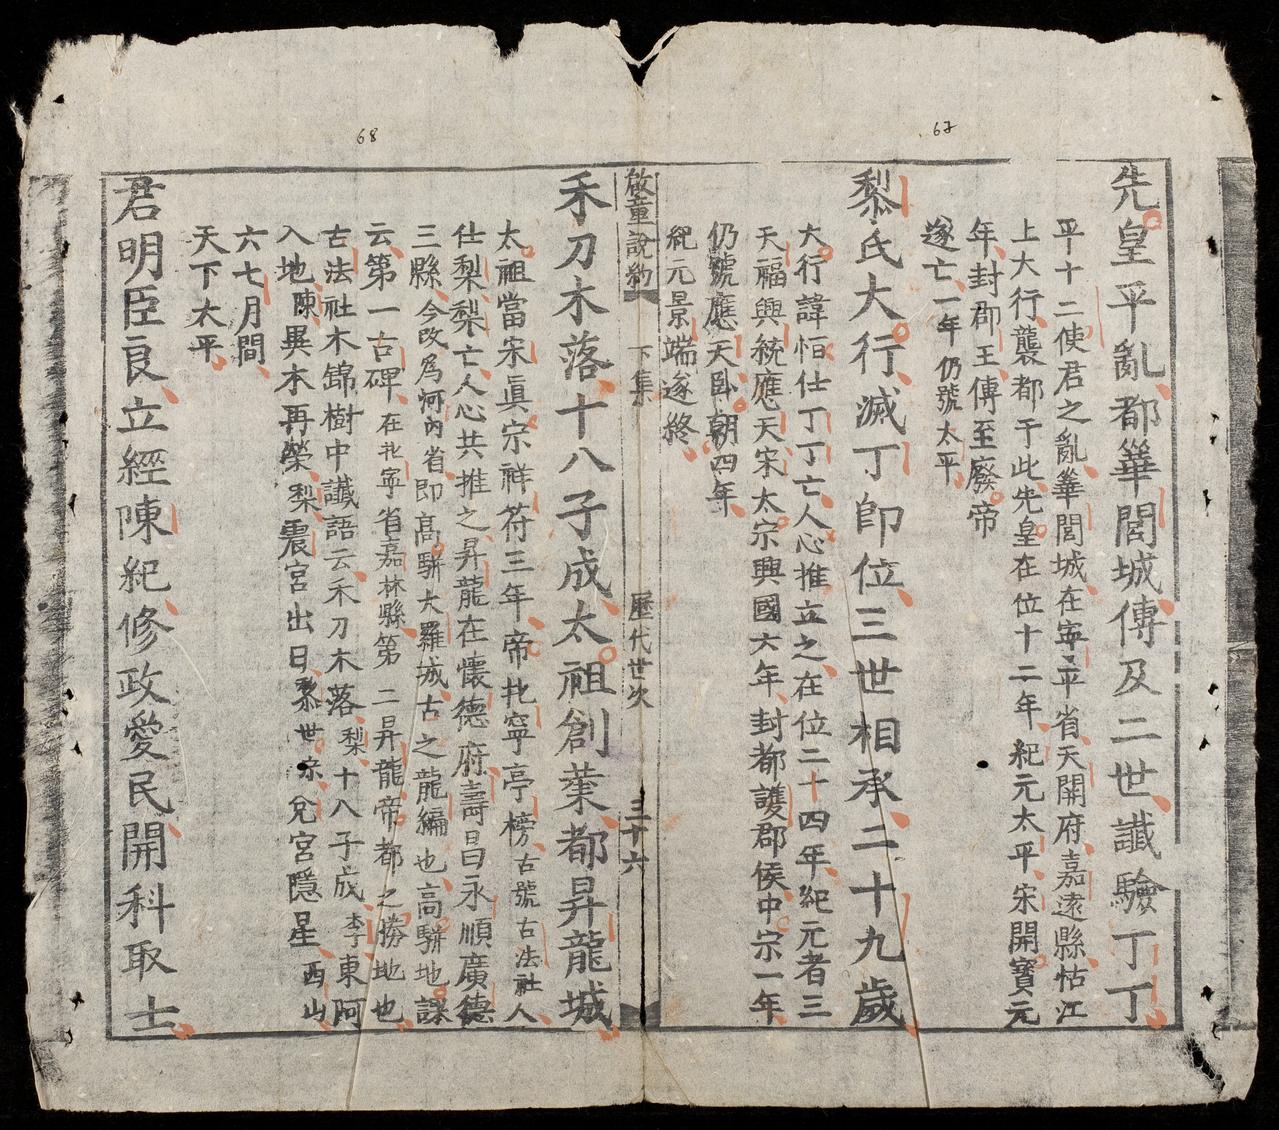 67
先皇平亂都華閭城傳及二世讖驗丁丁
平十二使君之亂華閭城在寧平省天關府嘉遠縣怙江
上大行襲都于此先皇在位十二年紀元太平宋開寶元
年封郡王傳至廢帝
遂亡一年仍號太平
黎氏大行滅丁卽位三世相承二十九歲
大行諱恒仕丁丁亡人心推立之在位二十四年紀元者三
天福興統應天宋太宗興國六年封都護郡侯中宗一年
仍號應天臥朝四年
紀元景瑞遂終
啟童說約
下集
歷代世次
三十六
68
禾刀木落十八子成太祖創業都昇龍城
太祖當宋眞宗祥符三年帝北寧亭榜古號古法社人
仕梨梨亡人心共推之昇龍在懷德府壽昌永順廣德
三縣今改爲河內省卽高駢大羅城古之龍編也高駢地課
云第一古碑在北寧省嘉林縣第二昇龍帝都之勝地也
古法社木錦樹中讖語云禾刀木落梨十八子成李東阿
入地陳異木再榮梨震宮出日黎世宗兌宮隱星西山
六七月間
天下太平
君明臣良立經陳紀修政愛民開科取士